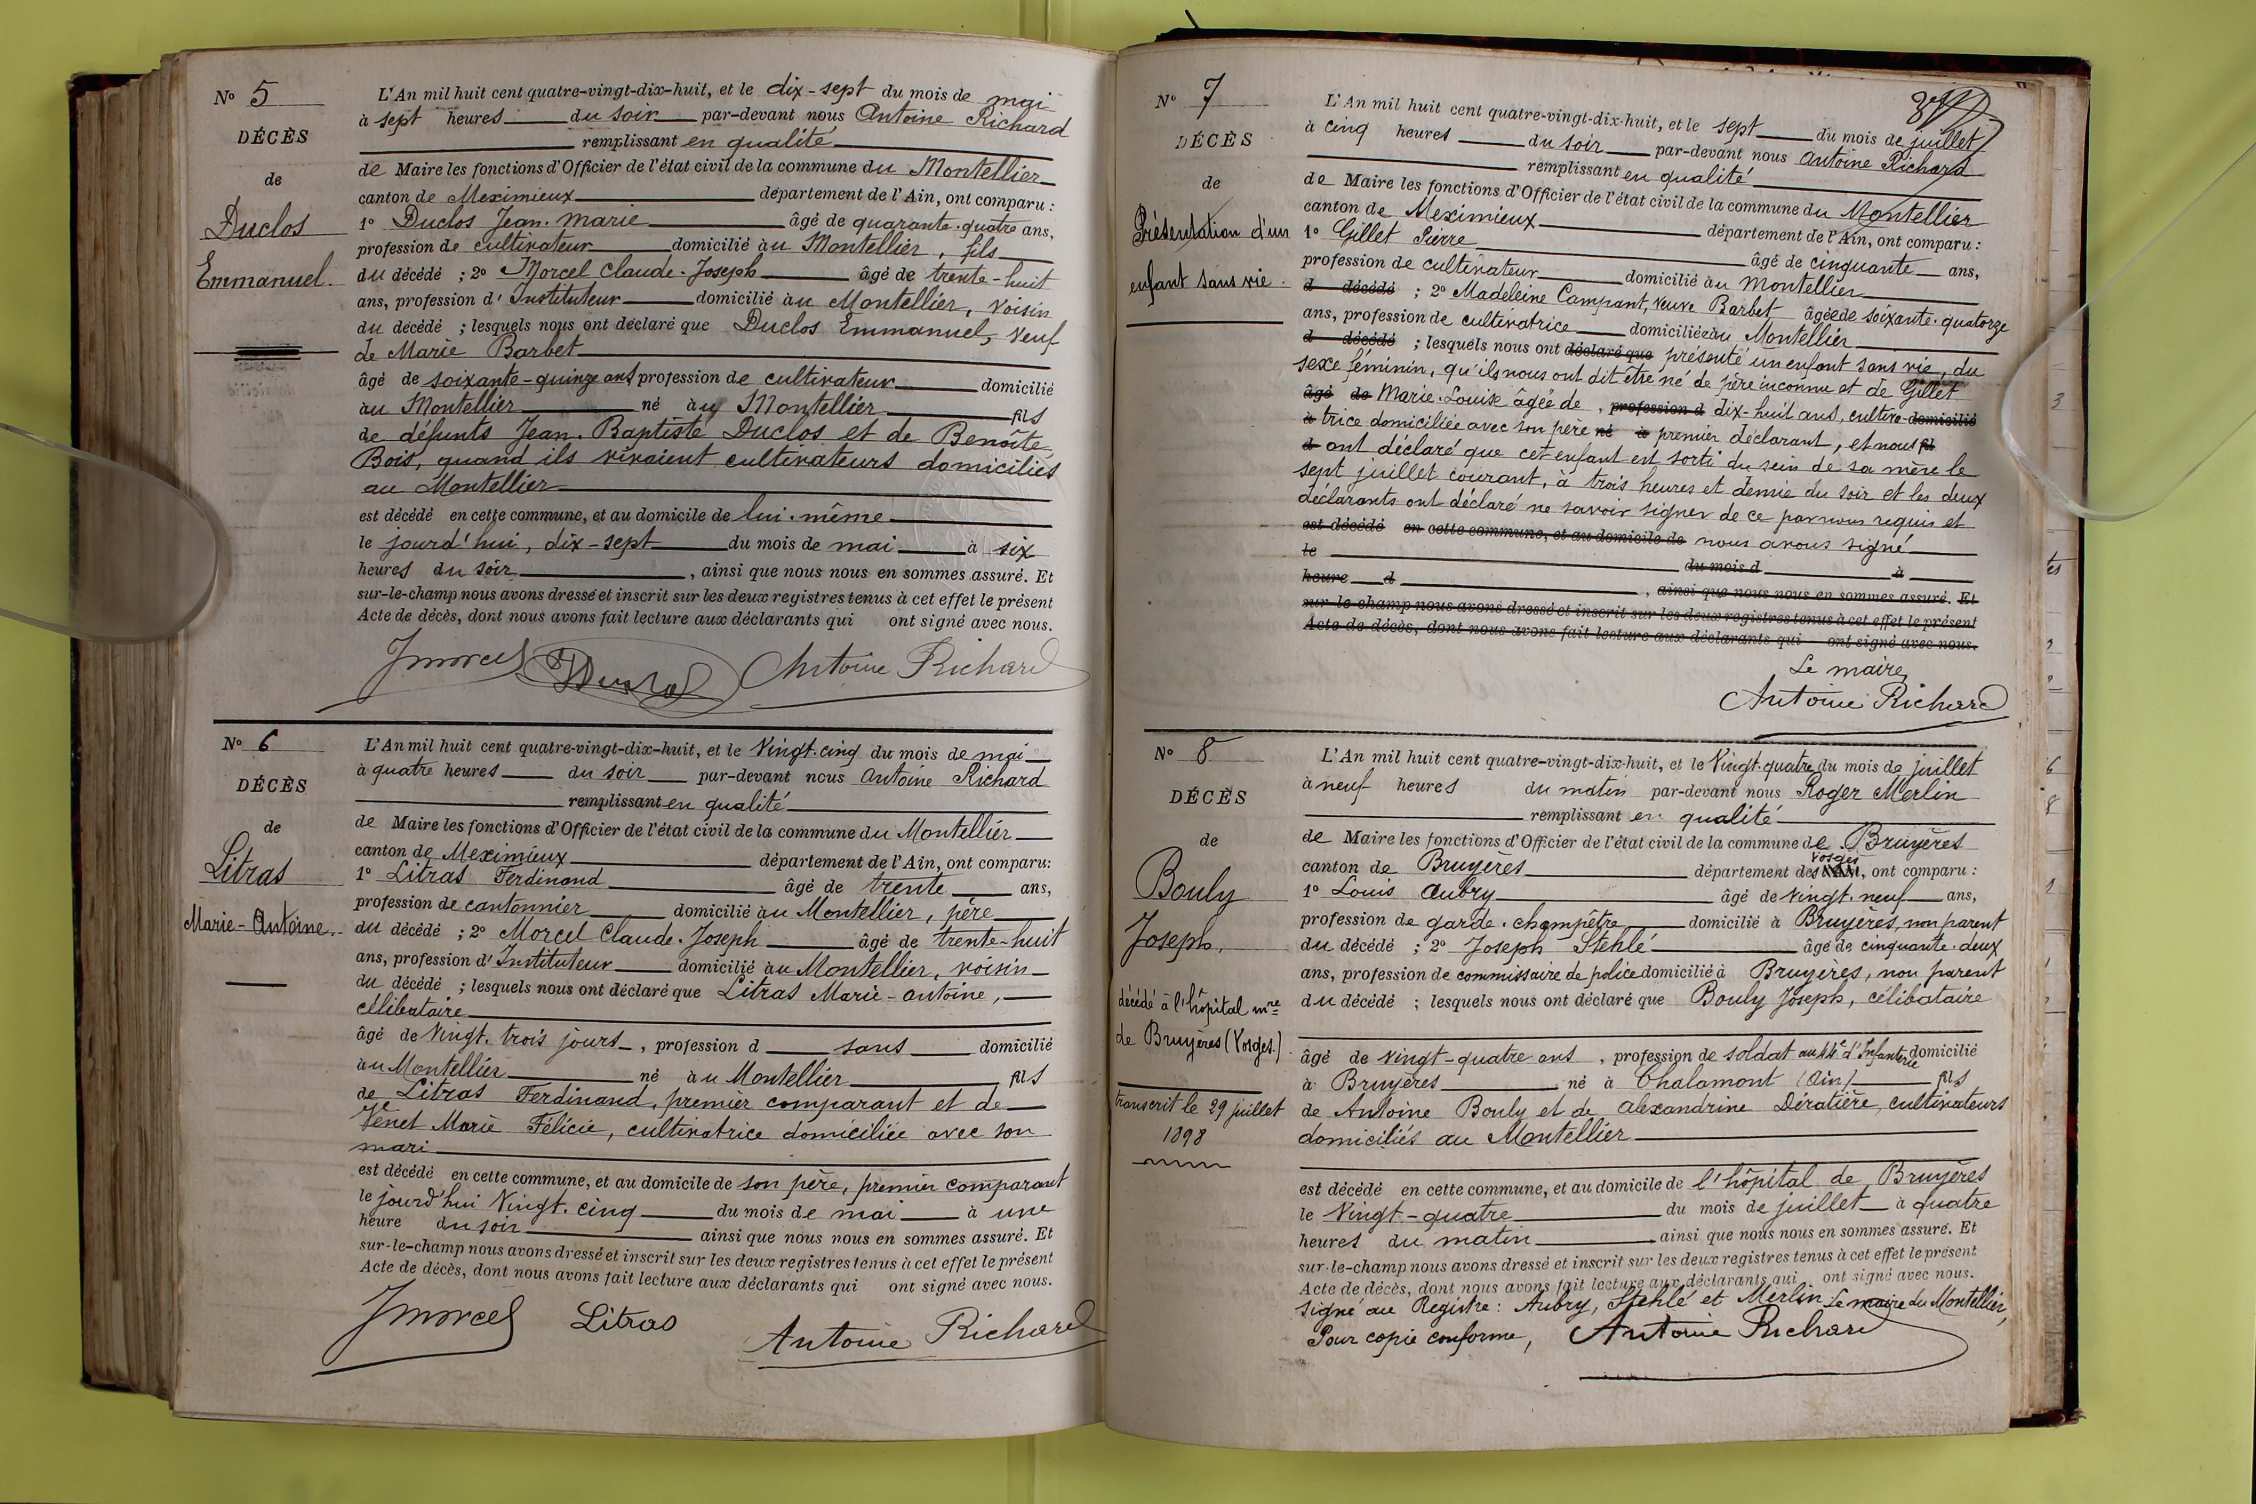 N° 5
DÉCÈS
de
Duclos
Emmanuel.
L'An mil huit cent quatre-vingt-dix-huit, et le dix-sept du mois de mai
à sept heures du soir par-devant nous Antoine Richard
remplissant en qualité
de Maire les fonctions d'Officier de l'état civil de la commune du Montellier
canton de Meximieux département de l'Ain, ont comparu :
1° Duclos Jean-Marie âgé de quarante-quatre ans,
profession de cultivateur domicilié au Montellier, fils
du décédé ; 2° Morcel Claude-Joseph âgé de trente-huit
ans, profession d'Instituteur domicilié au Montellier, voisin
du décédé ; lesquels nous ont déclaré que Duclos Emmanuel, veuf
de Marie Barbet
âgé de soixante-quinze ans profession de cultivateur domicilié
au Montellier né au Montellier fils
de défunts Jean-Baptiste Duclos et de Benoîte
Bois, quand ils vivaient cultivateurs domiciliés
au Montellier
est décédé en cette commune, et au domicile de lui-même
le jourd'hui, dix-sept du mois de mai à six
heures du soir, ainsi que nous nous en sommes assuré. Et
sur-le-champ nous avons dressé et inscrit sur les deux registres tenus à cet effet le présent
Acte de décès, dont nous avons fait lecture aux déclarants qui ont signé avec nous.
JMorcel Antoine Richard
N° 6
DÉCÈS
de
Litras
Marie-Antoine.
L'An mil huit cent quatre-vingt-dix-huit, et le vingt-cinq du mois de mai
à quatre heures du soir par-devant nous Antoine Richard
remplissant en qualité
de Maire les fonctions d'Officier de l'état civil de la commune du Montellier
canton de Meximieux département de l'Ain, ont comparu:
1° Litras Ferdinand âgé de trente ans,
profession de cantonnier domicilié au Montellier, père
du décédé ; 2° Morcel Claude-Joseph âgé de trente-huit
ans, profession d'Instituteur domicilié au Montellier, voisin
du décédé ; lesquels nous ont déclaré que Litras Marie-Antoine,
célibataire
âgé de vingt-trois jours, profession d sans domicilié
au Montellier né au Montellier fils
de Litras Ferdinand, premier comparant et de
Venet Marie Félicie, cultivatrice domiciliée avec son
mari
est décédé en cette commune, et au domicile de son père, premier comparant
le jourd'hui vingt-cinq du mois de mai à une
heure du soir ainsi que nous nous en sommes assuré. Et
sur-le-champ nous avons dressé et inscrit sur les deux registres tenus à cet effet le présent
Acte de décès, dont nous avons fait lecture aux déclarants qui ont signé avec nous.
JMorcel Litras Antoine Richard
N° 7
DÉCÈS
de
Présentation d'un
enfant sans vie.
L'An mil huit cent quatre-vingt-dix-huit, et le sept du mois de juillet
à cinq heures du soir par-devant nous Antoine Richard
remplissant en qualité
de Maire les fonctions d'Officier de l'état civil de la commune du Montellier
canton de Meximieux département de l'Ain, ont comparu :
1° Gillet Pierre âgé de cinquante ans,
profession de cultivateur domicilié au Montellier
d décédé ; 2° Madeleine Campant, veuve Barbet âgée de soixante-quatorze
ans, profession de cultivatrice domiciliée au Montellier
d décédé ; lesquels nous ont déclaré que présenté un enfant sans vie, du
sexe féminin, qu'ils nous ont dit être né de père inconnu et de Gillet
âgé de Marie-Louise âgée de, profession d dix-huit ans, cultiva-domicilié
à trice domiciliée avec son père né à premier déclarant, et nous fil
d ont déclaré que cet enfant est sorti du sein de sa mère le
sept juillet courant, à trois heures et demie du soir et les deux
déclarants ont déclaré ne savoir signer de ce par nous requis et
est décédé en cette commune, et au domicile de nous avons signé
le du mois d à
heure d , ainsi que nous nous en sommes assuré. Et
sur-le-champ nous avons dressé et inscrit sur les deux registres tenus à cet effet le présent
Acte de décès, dont nous avons fait lecture aux déclarants qui ont signé avec nous.
Le maire
Antoine Richard
N° 8
DÉCÈS
de
Bouly
Joseph.
décédé à l'hôpital mre
de Bruyères (Vosges.)
transcrit le 29 juillet
1898
L'An mil huit cent quatre-vingt-dix-huit, et le vingt-quatre du mois de juillet
à neuf heures du matin par-devant nous Roger Merlin
remplissant en qualité
de Maire les fonctions d'Officier de l'état civil de la commune de Bruyères
canton de Bruyères département des Vosges, ont comparu :
1° Louis Aubry âgé de vingt-neuf ans,
profession de garde-champêtre domicilié à Bruyères, non parent
du décédé ; 2° Joseph Stehlé âgé de cinquante-deux
ans, profession de commissaire de police domicilié à Bruyères, non parent
du décédé ; lesquels nous ont déclaré que Bouly Joseph, célibataire
âgé de vingt-quatre ans, profession de soldat au d'Infanterie domicilié
à Bruyères né à Chalamont (Ain) fils
de Antoine Bouly et de Alexandrine Dératière, cultivateurs
domiciliés au Montellier
est décédé en cette commune, et au domicile de l'hôpital de Bruyères
le vingt-quatre du mois de juillet à quatre
heures du matin ainsi que nous nous en sommes assuré. Et
sur-le-champ nous avons dressé et inscrit sur les deux registres tenus à cet effet le présent
Acte de décès, dont nous avons fait lecture aux déclarants qui ont signé avec nous.
Signé au Registre : Aubry, Stehlé et Merlin. Le maire du Montellier,
Pour copie conforme, Antoine Richard